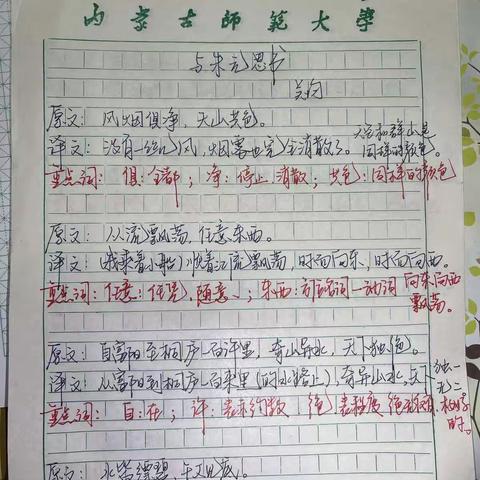 内蒙古师范大学
与朱元思书
吴均
原文：风烟俱净，天山共色。
译文：没有一丝风，烟雾也完全消散了。天空和群山是同样的颜色。
重点词：俱：全都；净：停止，消散；共色：同样的颜色
原文：从流飘荡，任意东西。
译文：我乘着小船）顺着江流飘荡，时而向东，时而向西。
重点词：任意：任凭，随意；东西：方位名词—动词 向东向西飘荡。
原文：自富阳至桐庐一百许里，奇山异水，天下独绝。
译文：从富阳到桐庐一百来里（的水路上），奇异山水，天下独一无二
重点词：自：在；许：表示约数，绝
原文：水皆缥碧，千丈见底。